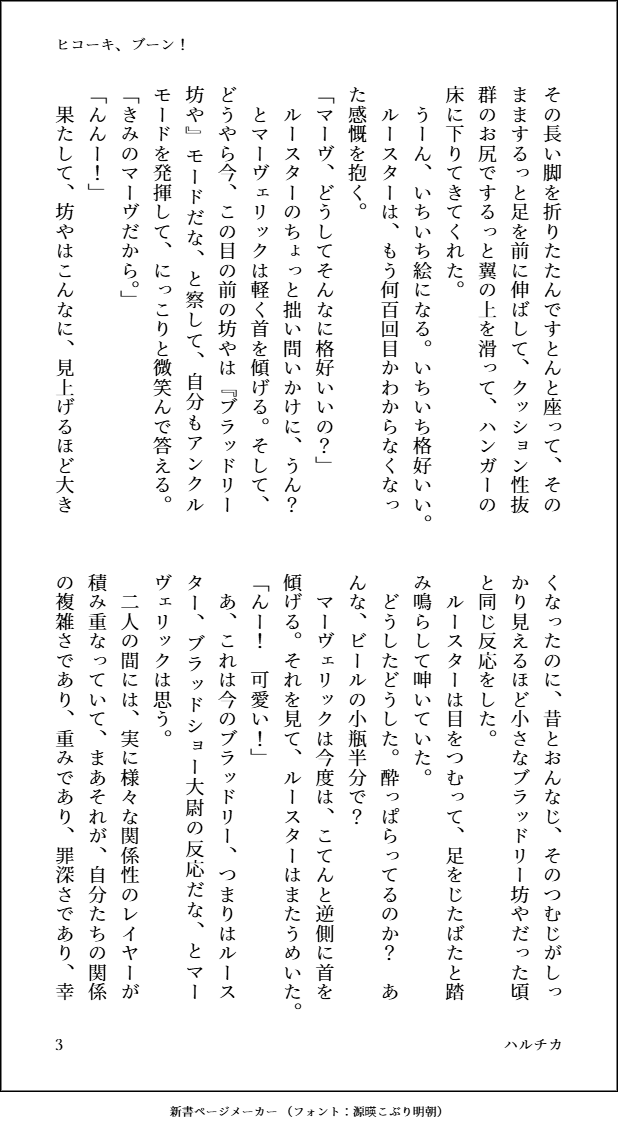 ヒコーキ、ブーン!
その長い脚を折りたたんですとんと座って、その
ままするっと足を前に伸ばして、クッション性抜
群のお尻でするっと翼の上を滑って、ハンガーの
床に下りてきてくれた。
うーん、いちいち絵になる。いちいち格好いい。
ルースターは、もう何百回目かわからなくなっ
た感慨を抱く。
「マーヴ、どうしてそんなに格好いいの?」
ルースターのちょっと拙い問いかけに、うん?
とマーヴェリックは軽く首を傾げる。そして、
どうやら今、この目の前の坊やは『ブラッドリー
坊や』モードだな、と察して、自分もアンクル
モードを発揮して、にっこりと微笑んで答える。
「きみのマーヴだから。」
「んんー!」
果たして、坊やはこんなに、見上げるほど大き
くなったのに、昔とおんなじ、そのつむじがしっ
かり見えるほど小さなブラッドリー坊やだった頃
と同じ反応をした。
ルースターは目をつむって、足をじたばたと踏
み鳴らして呻いていた。
どうしたどうした。酔っぱらってるのか? あ
んな、ビールの小瓶半分で?
マーヴェリックは今度は、こてんと逆側に首を
傾げる。それを見て、ルースターはまたうめいた。
「んー! 可愛い!」
あ、これは今のブラッドリー、つまりはルース
ター、ブラッドショー大尉の反応だな、とマー
ヴェリックは思う。
二人の間には、実に様々な関係性のレイヤーが
積み重なっていて、まあそれが、自分たちの関係
の複雑さであり、重みであり、罪深さであり、幸
3
ハルチカ
新書ページメーカー(フォント:源暎こぶり明朝)